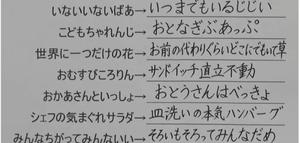 いないいないばあ→いつまでもいるじじい
こどもちゃれんじ→おとなぎぶあっぷ
世界に一つだけの花→お前の代わりくらいどこにでもいて草
おむすびころりん→サンドイッチ直立不動
おかあさんといっしょ→おとうさんはべっきょ
シェフの気まぐれサラダ→皿洗いの本気ハンバーグ
みんなちがってみんないい→そろいもそろってみんなだめ